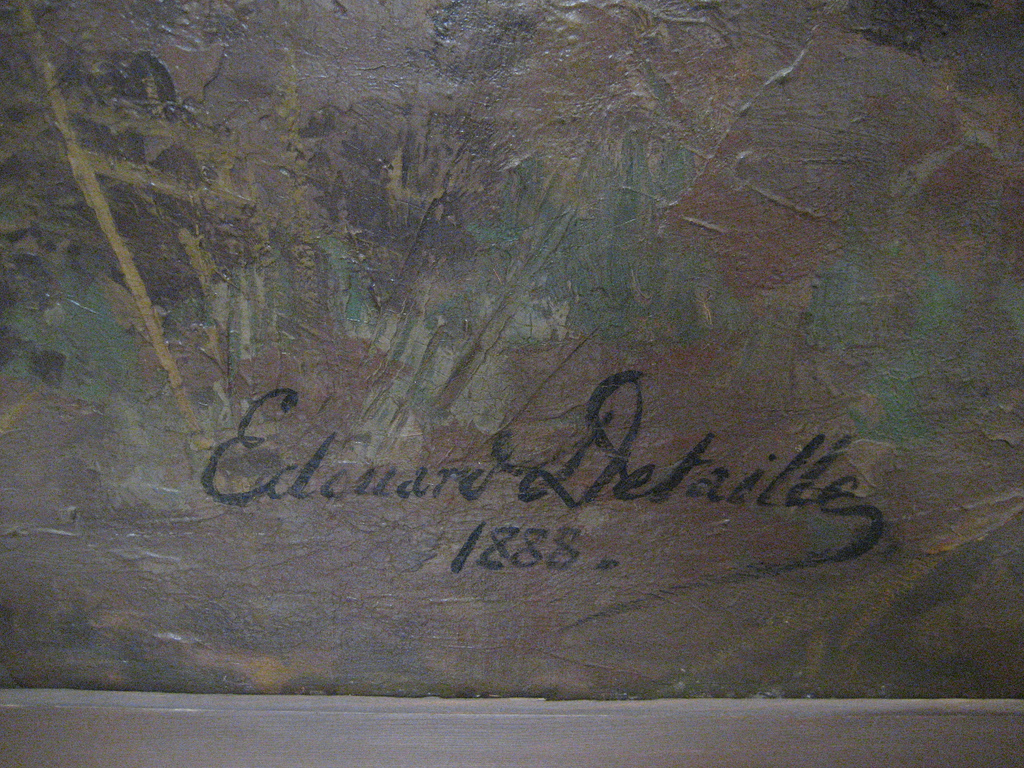 Edouard Detaille
1888.